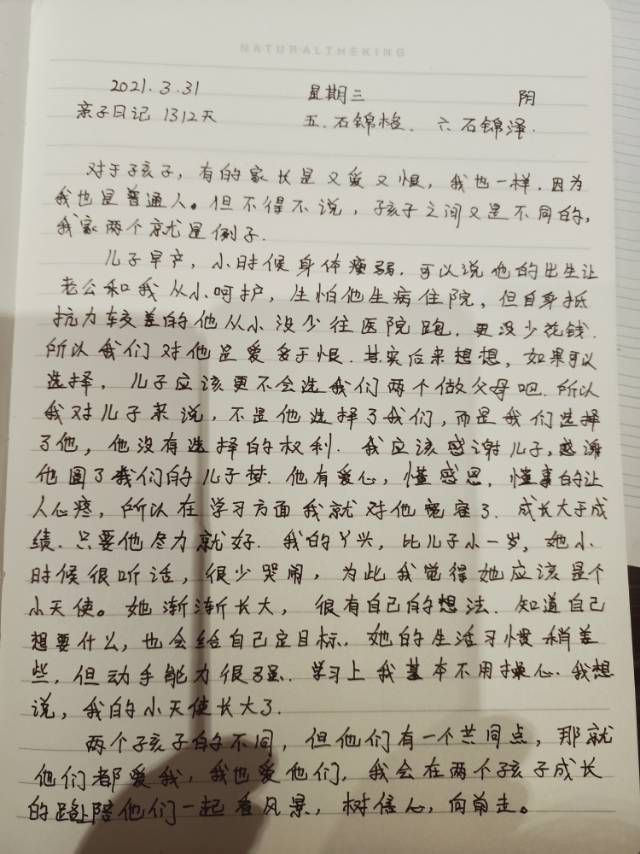 NATURALTHEKING
2021.3.31 星期三 阴
亲子日记 1312天 五.石锦格. 六石锦泽.
对于孩子，有的家长是又爱又恨，我也一样.因为
我也是普通人。但不得不说，孩子之间又是不同的，
我家两个就是例子.
儿子早产，小时候身体瘦弱.可以说他的出生让
老公和我从小呵护，生怕他生病住院，但自身抵
抗力较差的他从小没少往医院跑.更没少花钱.
所以我们对他是爱多于恨.其实后来想想，如果可以
选择，儿子应该更不会选我们两个做父母吧.所以
我对儿子来说，不是他选择了我们，而是我们选择
了他，他没有选择的权利.我应该感谢儿子，感谢
他圆了我们的儿子梦.他有爱心，懂感恩，懂事的让
人心疼，所以在学习方面我就对他宽容了.成长大于成
绩.只要他尽力就好.我的丫头，比儿子小一岁，她小
时候很听话，很少哭闹，为此我觉得她应该是个
小天使。她渐渐长大，很有自己的想法.知道自己
想要什么，也会给自己定目标.她的生活习惯稍差
些.但动手能力很强.学习上我基本不用操心.我想
说，我的小天使长大了.
两个孩子的不同，但他们有一个共同点，那就
他们都爱我，我也爱他们.我会在两个孩子成长
的路陪他们一起看风景，树信心，向前走。